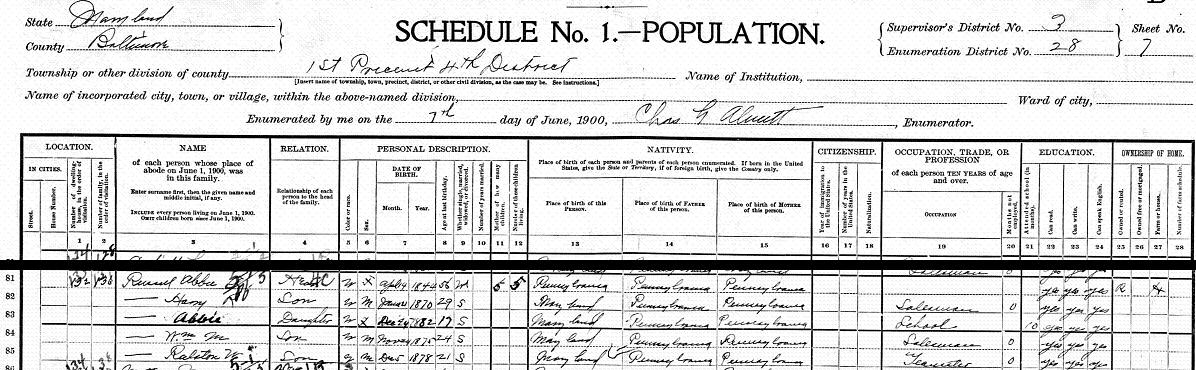 State Maryland
County Baltimore
SCHEDULE No. 1.—POPULATION.
Supervisor's District No. 3
Enumeration District No. 28
Sheet No. 7
Township or other division of county 1st Precinct 4th District
[Insert name of township, town, precinct, district, or other civil division, as the case may be. See instructions.]
Name of Institution,
Name of incorporated city, town, or village, within the above-named division,
Ward of city,
Enumerated by me on the 7th day of June, 1900, Chas G , Enumerator.
LOCATION. NAME RELATION. PERSONAL DESCRIPTION. NATIVITY. CITIZENSHIP. OCCUPATION, TRADE, OR PROFESSION EDUCATION. OWNERSHIP OF HOME.
IN CITIES. Street. House Number. Number of dwelling-house, in the order of visitation. Number of family, in the order of visitation.
of each person whose place of abode on June 1, 1900, was in this family.
Enter surname first, then the given name and middle initial, if any.
INCLUDE every person living on June 1, 1900.
OMIT children born since June 1, 1900.
Relationship of each person to the head of the family.
Color or race. Sex. DATE OF BIRTH. Month. Year. Age at last birthday. Whether single, married, widowed, or divorced. Number of years married. Mother of how many children. Number of these children living.
Place of birth of each person and parents of each person enumerated. If born in the United States, give the State or Territory; if of foreign birth, give the Country only.
Place of birth of this PERSON. Place of birth of FATHER of this person. Place of birth of MOTHER of this person.
Year of immigration to the United States. Number of years in the United States. Naturalization.
of each person TEN YEARS of age and over.
OCCUPATION Months not employed.
Attended school (in months). Can read. Can write. Can speak English.
Owned or rented. Owned free or mortgaged. Farm or house.
1 2 3 4 5 6 7 8 9 10 11 12 13 14 15 16 17 18 19 20 21 22 23 24 25 26 27 28
81 132 138 Russell Abbie Head W F 1844 56 Wd 5 5 Pennsylvania Pennsylvania Pennsylvania yes yes yes R H
82 — Harry Son W M 1870 29 S Maryland Pennsylvania Pennsylvania Salesman 0 yes yes yes
83 — Abbie Daughter W F Dec 1882 17 S Maryland Pennsylvania Pennsylvania School 10 yes yes yes
84 — Wm M Son W M 1875 24 S Maryland Pennsylvania Pennsylvania Salesman 0 yes yes yes
85 — Ralston Son W M Dec 1878 21 S Maryland Pennsylvania Pennsylvania Teamster 0 yes yes yes
86